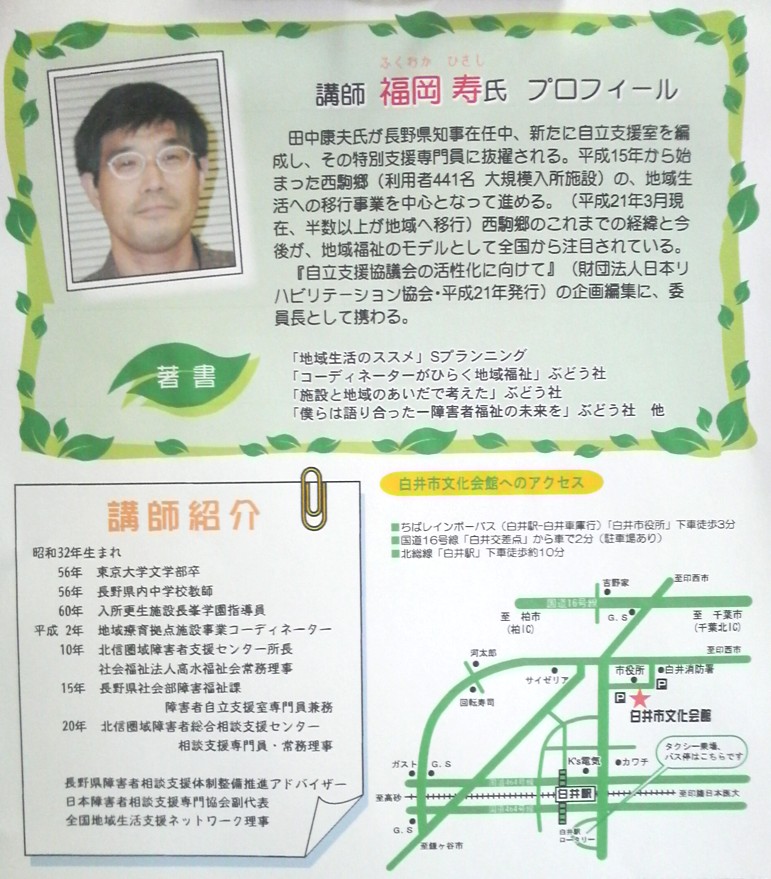 ふくおか ひさし
講師 福岡 寿氏 プロフィール
田中康夫氏が長野県知事在任中、新たに自立支援室を編
成し、その特別支援専門員に抜擢される。平成15年から始
まった西駒郷(利用者441名 大規模入所施設)の、地域生
活への移行事業を中心となって進める。(平成21年3月現
在、半数以上が地域へ移行)西駒郷のこれまでの経緯と今
後が、地域福祉のモデルとして全国から注目されている。
『自立支援協議会の活性化に向けて』(財団法人日本リ
ハビリテーション協会・平成21年発行)の企画編集に、委
員長として携わる。
著書
「地域生活のススメ」Sプランニング
「コーディネーターがひらく地域福祉」ぶどう社
「施設と地域のあいだで考えた」ぶどう社
「僕らは語り合ったー障害者福祉の未来を」ぶどう社 他
講師紹介
昭和32年生まれ
56年 東京大学文学部卒
56年 長野県内中学校教師
60年 入所更生施設長峯学園指導員
平成 2年 地域療育拠点施設事業コーディネーター
10年 北信圏域障害者支援センター所長
社会福祉法人高水福祉会常務理事
15年 長野県社会部障害福祉課
障害者自立支援室専門員兼務
20年 北信圏域障害者総合相談支援センター
相談支援専門員・常務理事
長野県障害者相談支援体制整備推進アドバイザー
日本障害者相談支援専門協会副代表
全国地域生活支援ネットワーク理事
白井市文化会館へのアクセス
■ちばレインボーバス(白井駅-白井車庫行)「白井市役所」下車徒歩3分
■国道16号線「白井交差点」から車で2分(駐車場あり)
■北総線「白井駅」下車徒歩約10分
吉野家
至印西市
国道16号線
至 柏市
(柏IC)
G.S
至 千葉市
(千葉北IC)
河太郎
至印西市
サイゼリア
市役所
白井消防署
P
P
回転寿司
白井市文化会館
タクシー乗場、
バス停はこちらです
ガスト
G.S
K's電気
カワチ
国道464号線
至高砂
白井駅
至印旛日本医大
国道464号線
G.S
白井駅
ロータリー
至鎌ヶ谷市